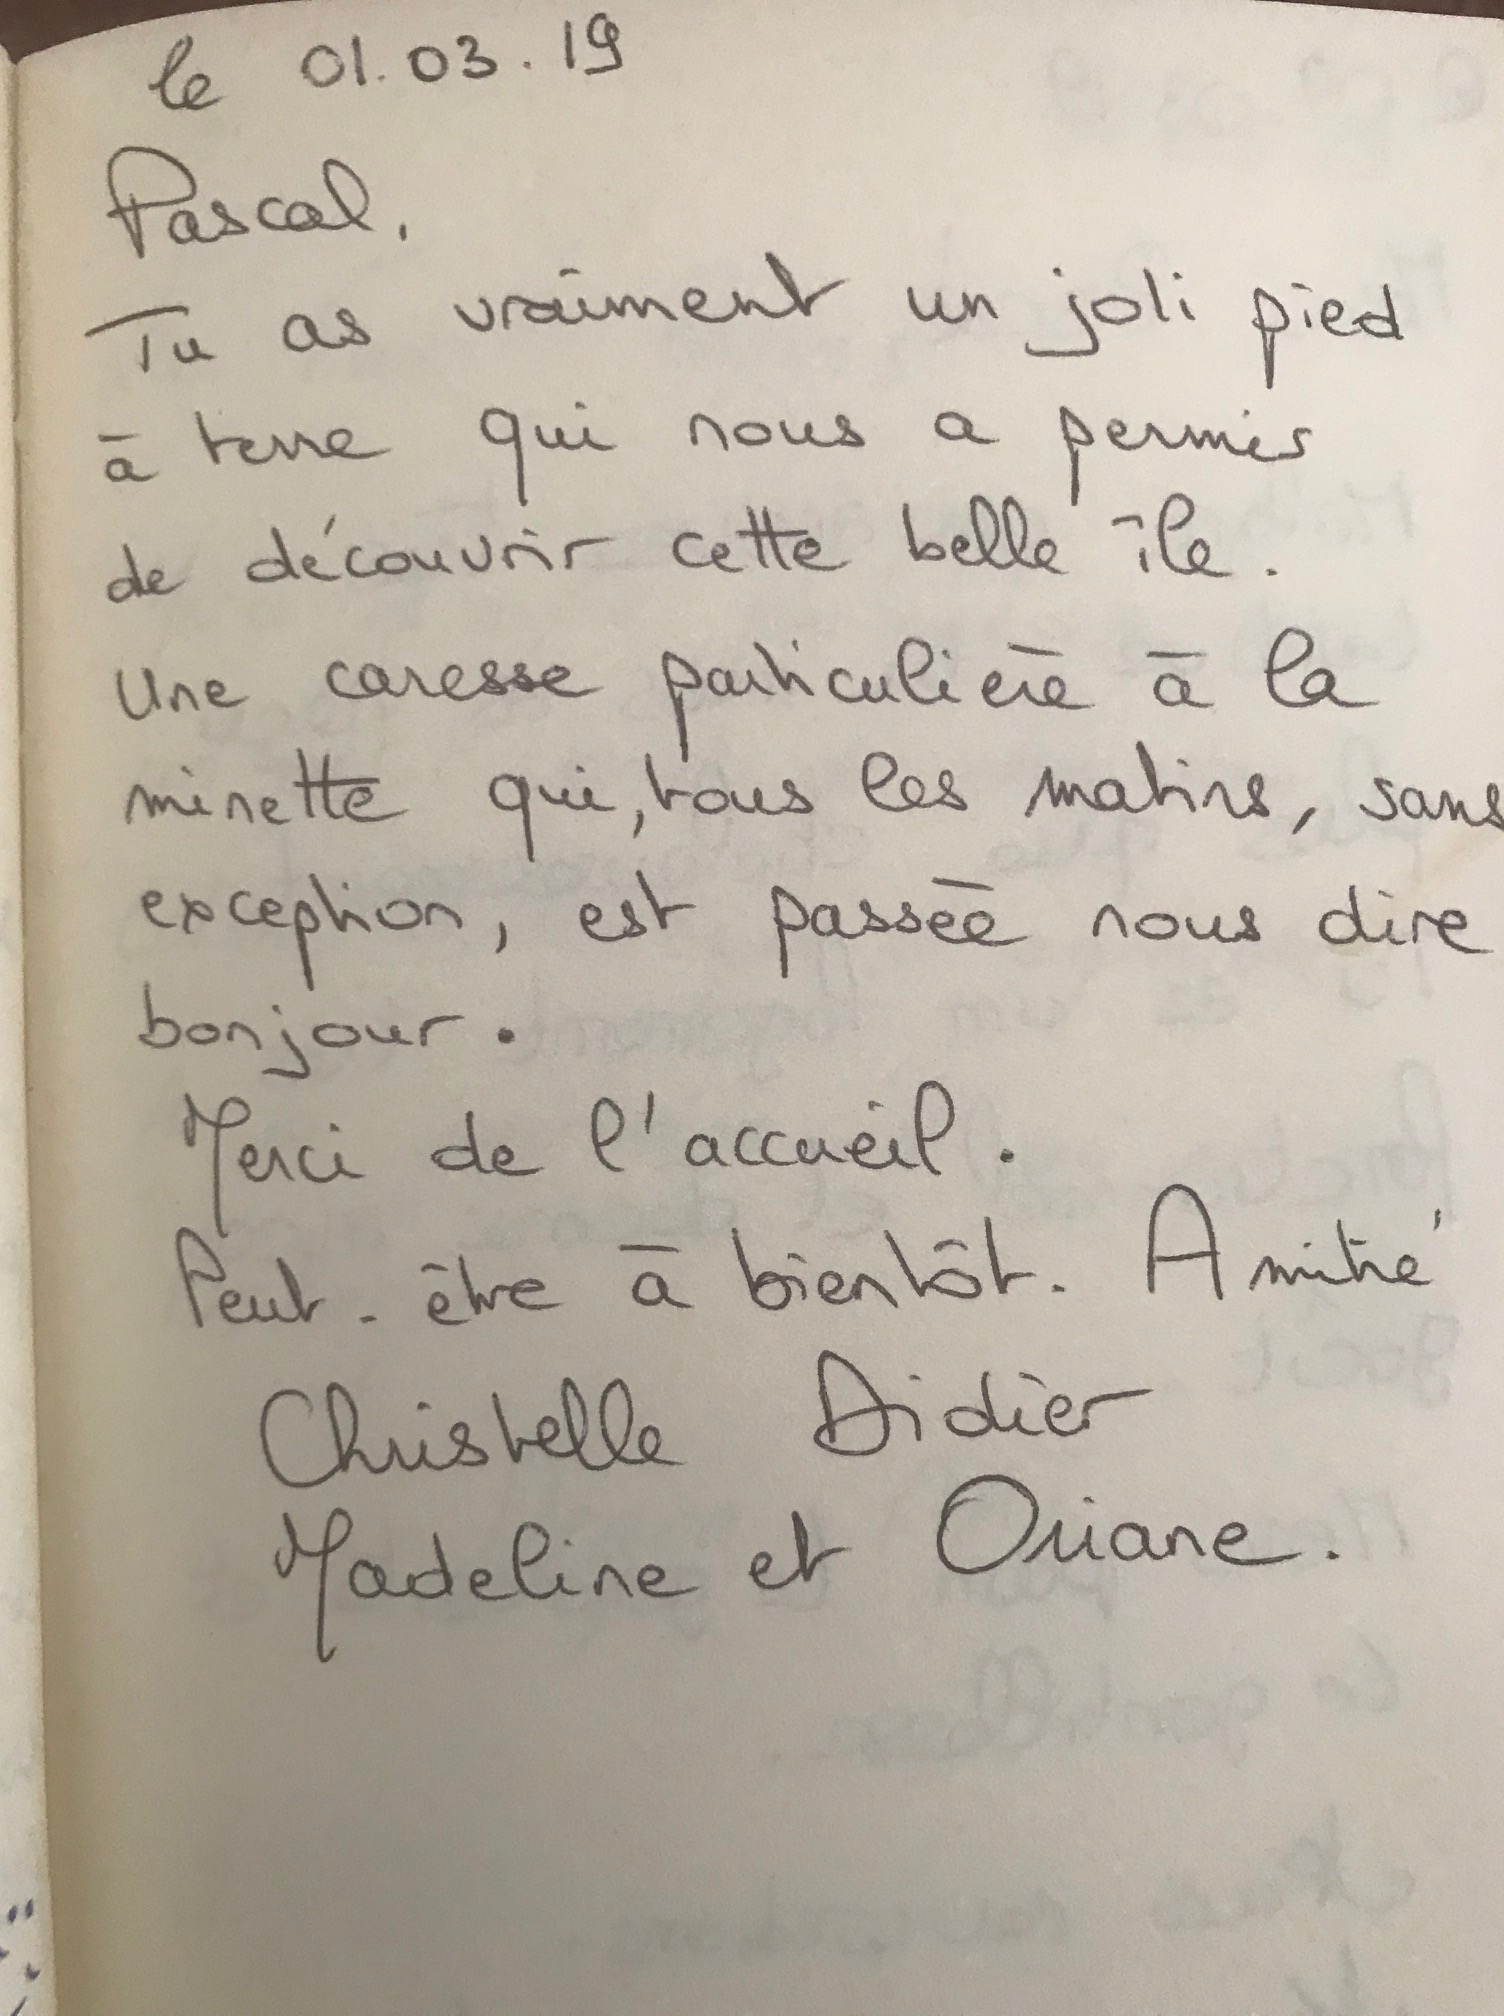 le 01.03.19
Pascal,
Tu as vraiment un joli pied
à terre qui nous a permis
de découvrir cette belle île.
Une caresse particulière à la
minette qui, tous les matins, sans
exception, est passée nous dire
bonjour.
Merci de l'accueil.
Peut-être à bientôt. Amitié
Christelle Didier
Madeline et Oriane.